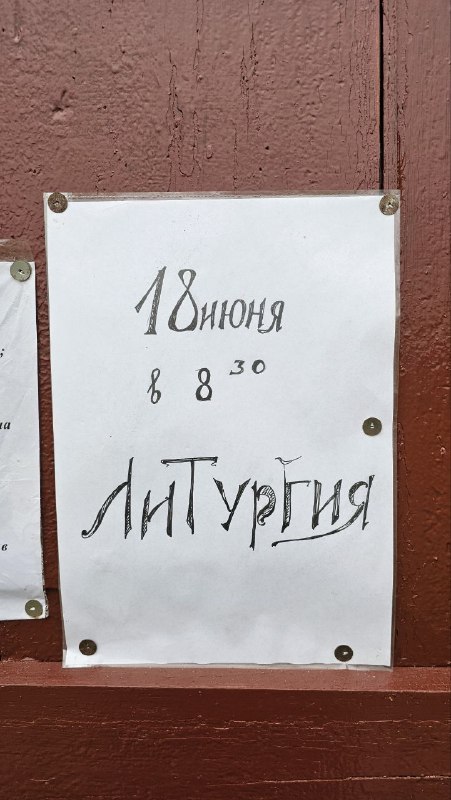 18 июня
в 8 30
Литургия